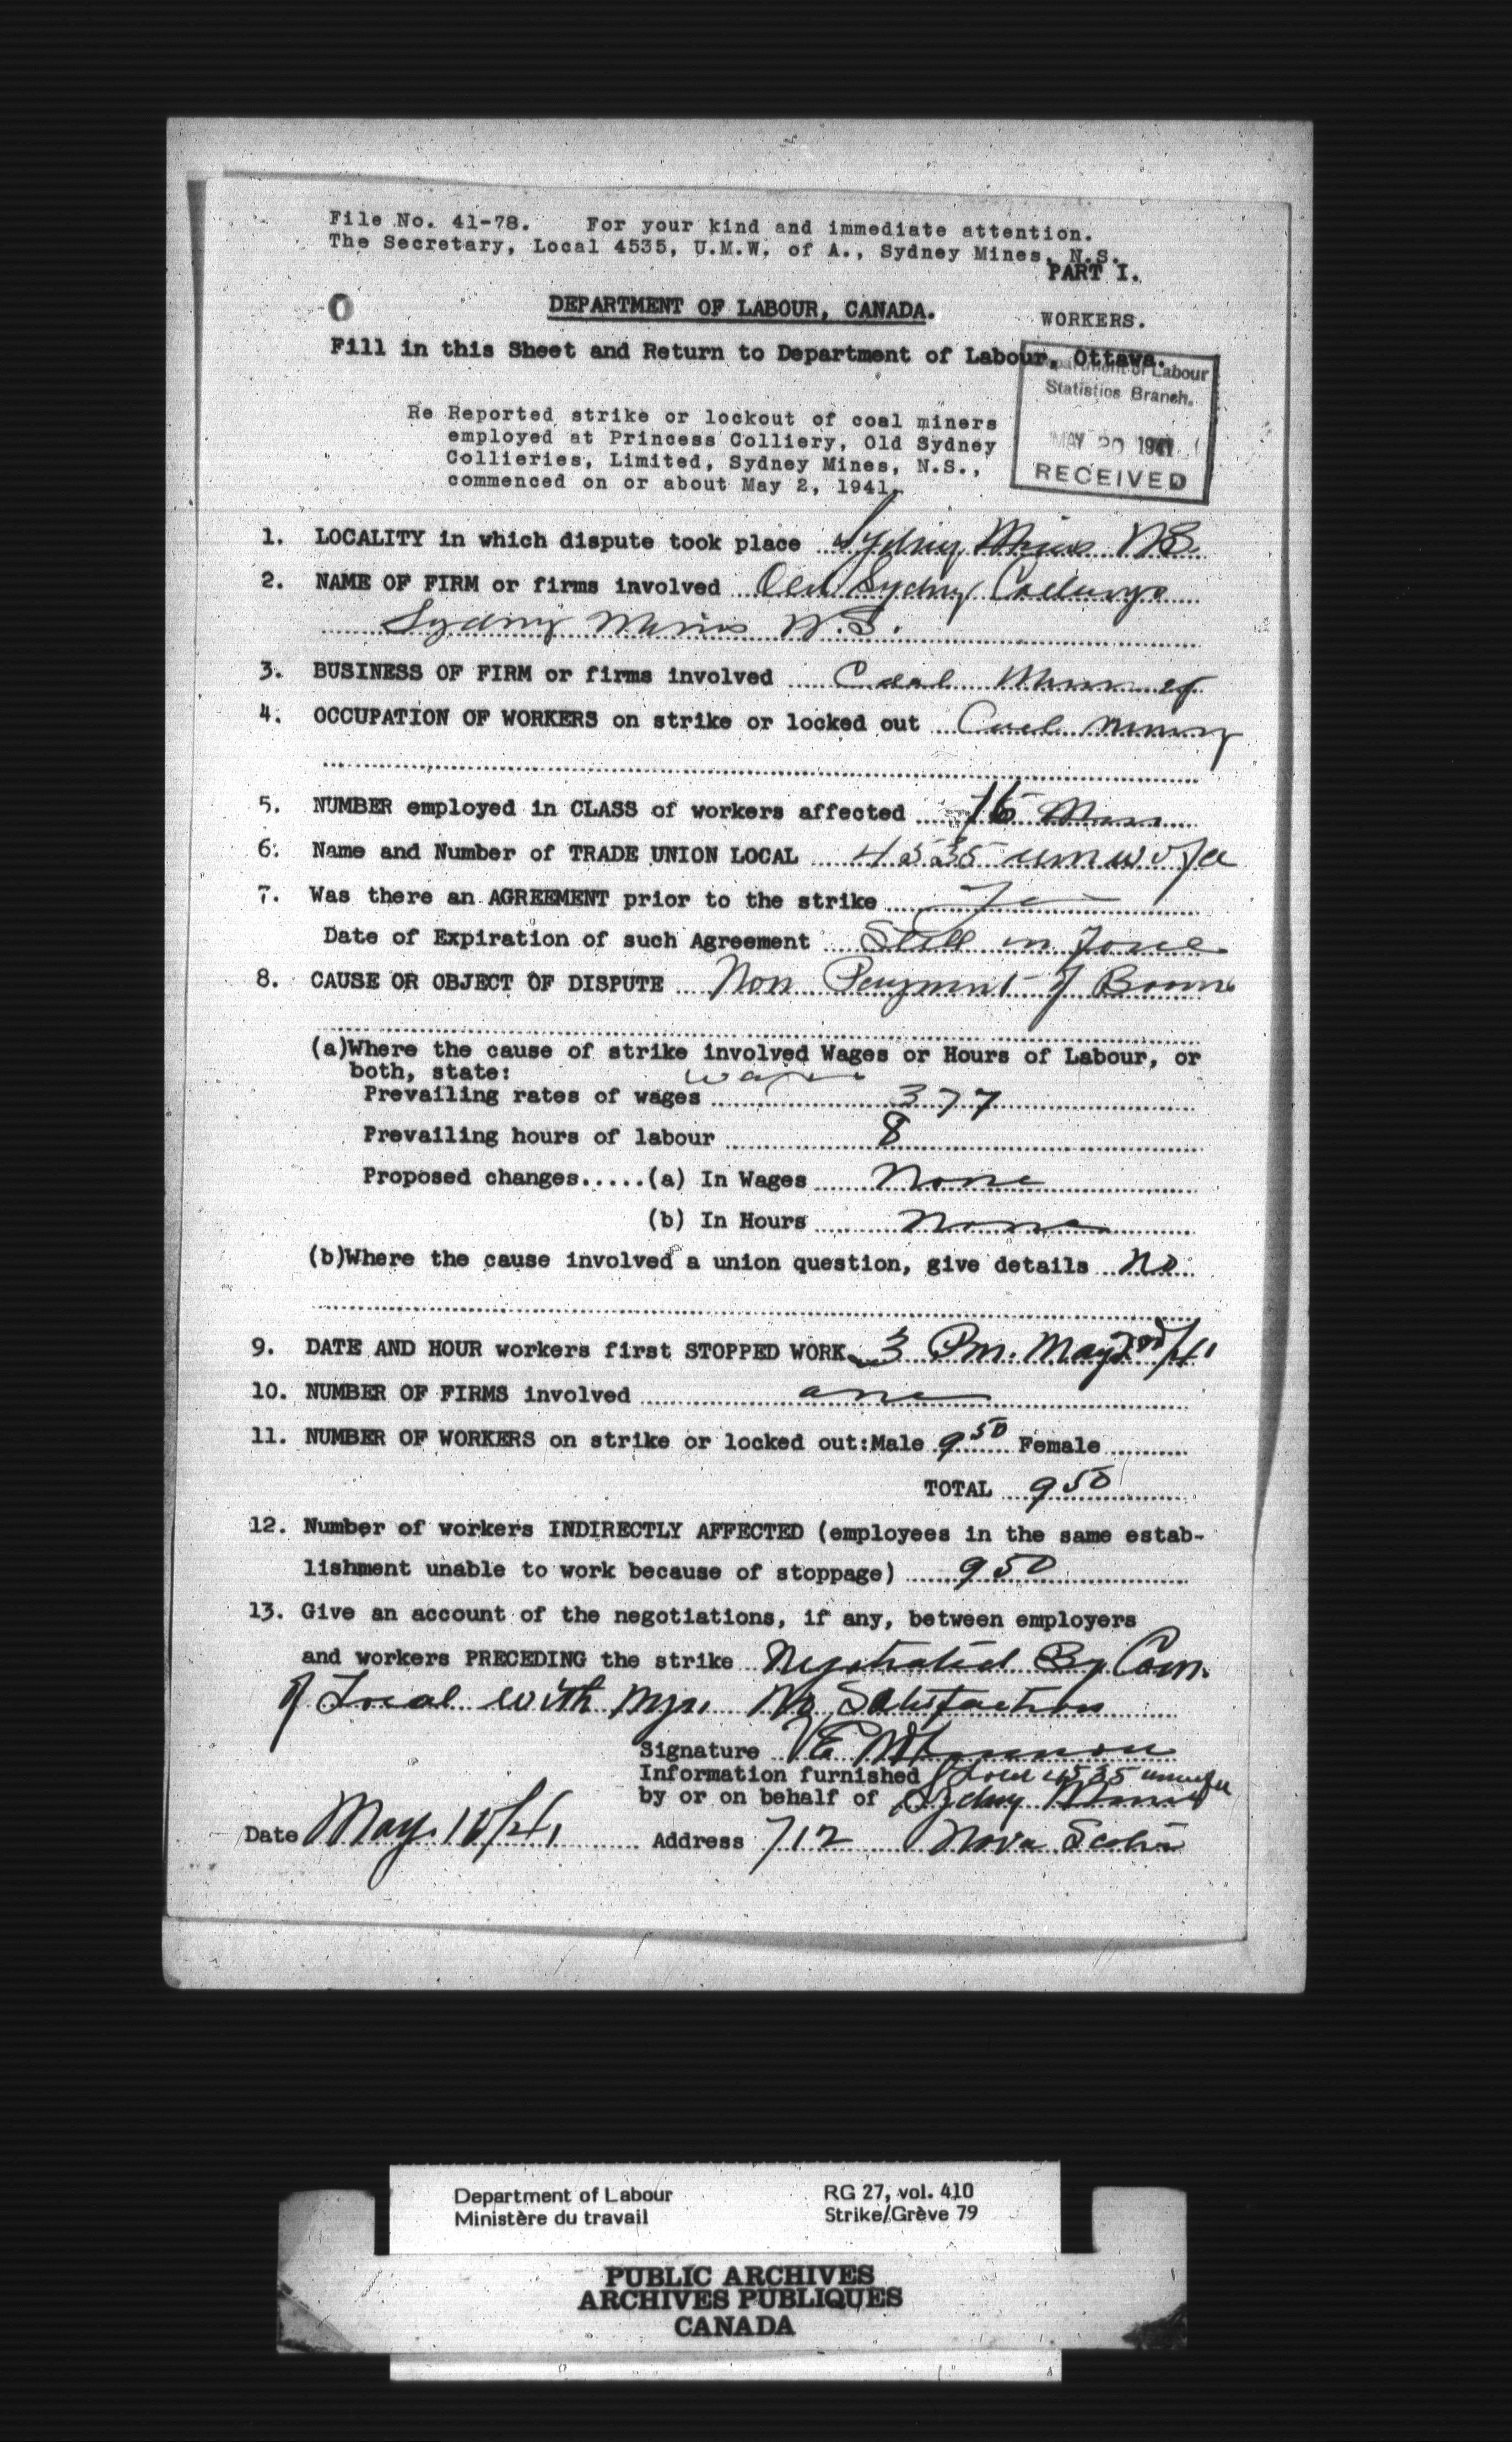 File No. 41-78. For your kind and immediate attention.
The Secretary, Local 4535, U.M.W. of A., Sydney Mines, N.S.
PART I.
O DEPARTMENT OF LABOUR, CANADA.
WORKERS.
Fill in this Sheet and Return to Department of Labour, Ottawa.
Department of Labour
Statistics Branch.
MAY 20 1941
RECEIVED
Re Reported strike or lockout of coal miners
employed at Princess Colliery, Old Sydney
Collieries, Limited, Sydney Mines, N.S.,
commenced on or about May 2, 1941.
1. LOCALITY in which dispute took place Sydney Mines NS.
2. NAME OF FIRM or firms involved Old Sydney Collierys
Sydney Mines N.S.
3. BUSINESS OF FIRM or firms involved Coal Mining
4. OCCUPATION OF WORKERS on strike or locked out Coal mining
5. NUMBER employed in CLASS of workers affected Men
6. Name and Number of TRADE UNION LOCAL 4535 umw of a
7. Was there an AGREEMENT prior to the strike Yes
Date of Expiration of such Agreement Still in force
8. CAUSE OR OBJECT OF DISPUTE Non Payment of Bonus
(a)Where the cause of strike involved Wages or Hours of Labour, or
both, state: wages
Prevailing rates of wages 377
Prevailing hours of labour 8
Proposed changes.....(a) In Wages None
(b) In Hours None
(b)Where the cause involved a union question, give details no
9. DATE AND HOUR workers first STOPPED WORK 3 Pm. May 2nd/41
10. NUMBER OF FIRMS involved one
11. NUMBER OF WORKERS on strike or locked out:Male 950 Female
TOTAL 950
12. Number of workers INDIRECTLY AFFECTED (employees in the same estab-
lishment unable to work because of stoppage) 950
13. Give an account of the negotiations, if any, between employers
and workers PRECEDING the strike Negotiated By Com.
of Local with Mgr. No Satisfaction
Signature
Information furnished Local 4535 umwofa
by or on behalf of Sydney Mines
Date May /41 Address 712 Nova Scotia
Department of Labour RG 27, vol. 410
Ministère du travail Strike/Grève 79
PUBLIC ARCHIVES
ARCHIVES PUBLIQUES
CANADA